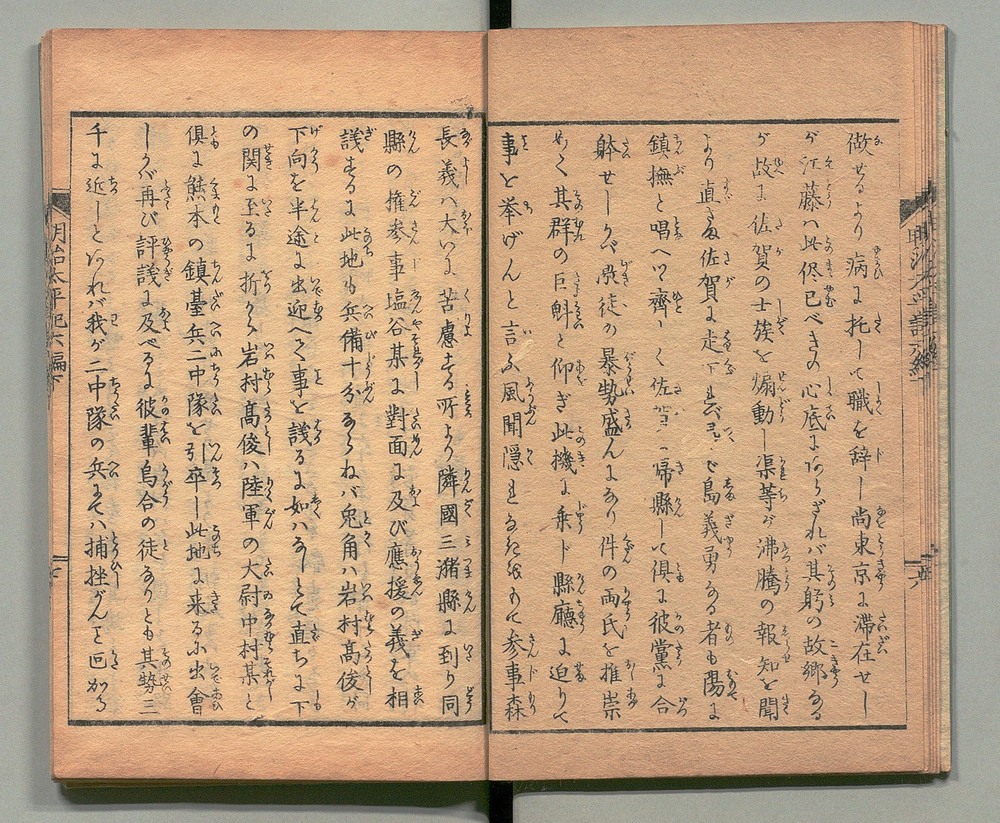 做せるより病に托して職を辞し尚東京に滞在せし
が江藤ハ此侭已べきの心底にあらざれバ其躬の故郷ある
が故に佐賀の士族を煽動し渠等が沸騰の報知を聞
より直さま佐賀に走下島義勇ある者も陽に
鎮撫と唱へつ齊しく佐賀へ帰縣しつ倶に彼黨に合
躰せしかバ原徒の暴勢盛んにあり件の両氏を推崇
めて其群の巨魁と仰ぎ此機に乗ド縣廳に迫りて
事を挙げんと言ふ風聞隠れなければ参事森
長義ハ大いに苦慮する所より隣國三潴縣に到り同
縣の権参事塩谷某に對面に及び應援の義を相
議するに此地も兵備十分ならねバ兎角ハ岩村髙俊が
下向を半途に出迎へて事を議るに如ハなしとて直ちに下
の関に至るに折から岩村髙俊ハ陸軍の大尉中村某と
倶に熊本の鎮臺兵二中隊を引卒し此地に来るに出會
しかバ再び評議に及べるに彼輩烏合の徒なりとも其勢三
千に近しといれバ我が二中隊の兵にてハ捕挫がんこと叵かる
明治太平記六編下